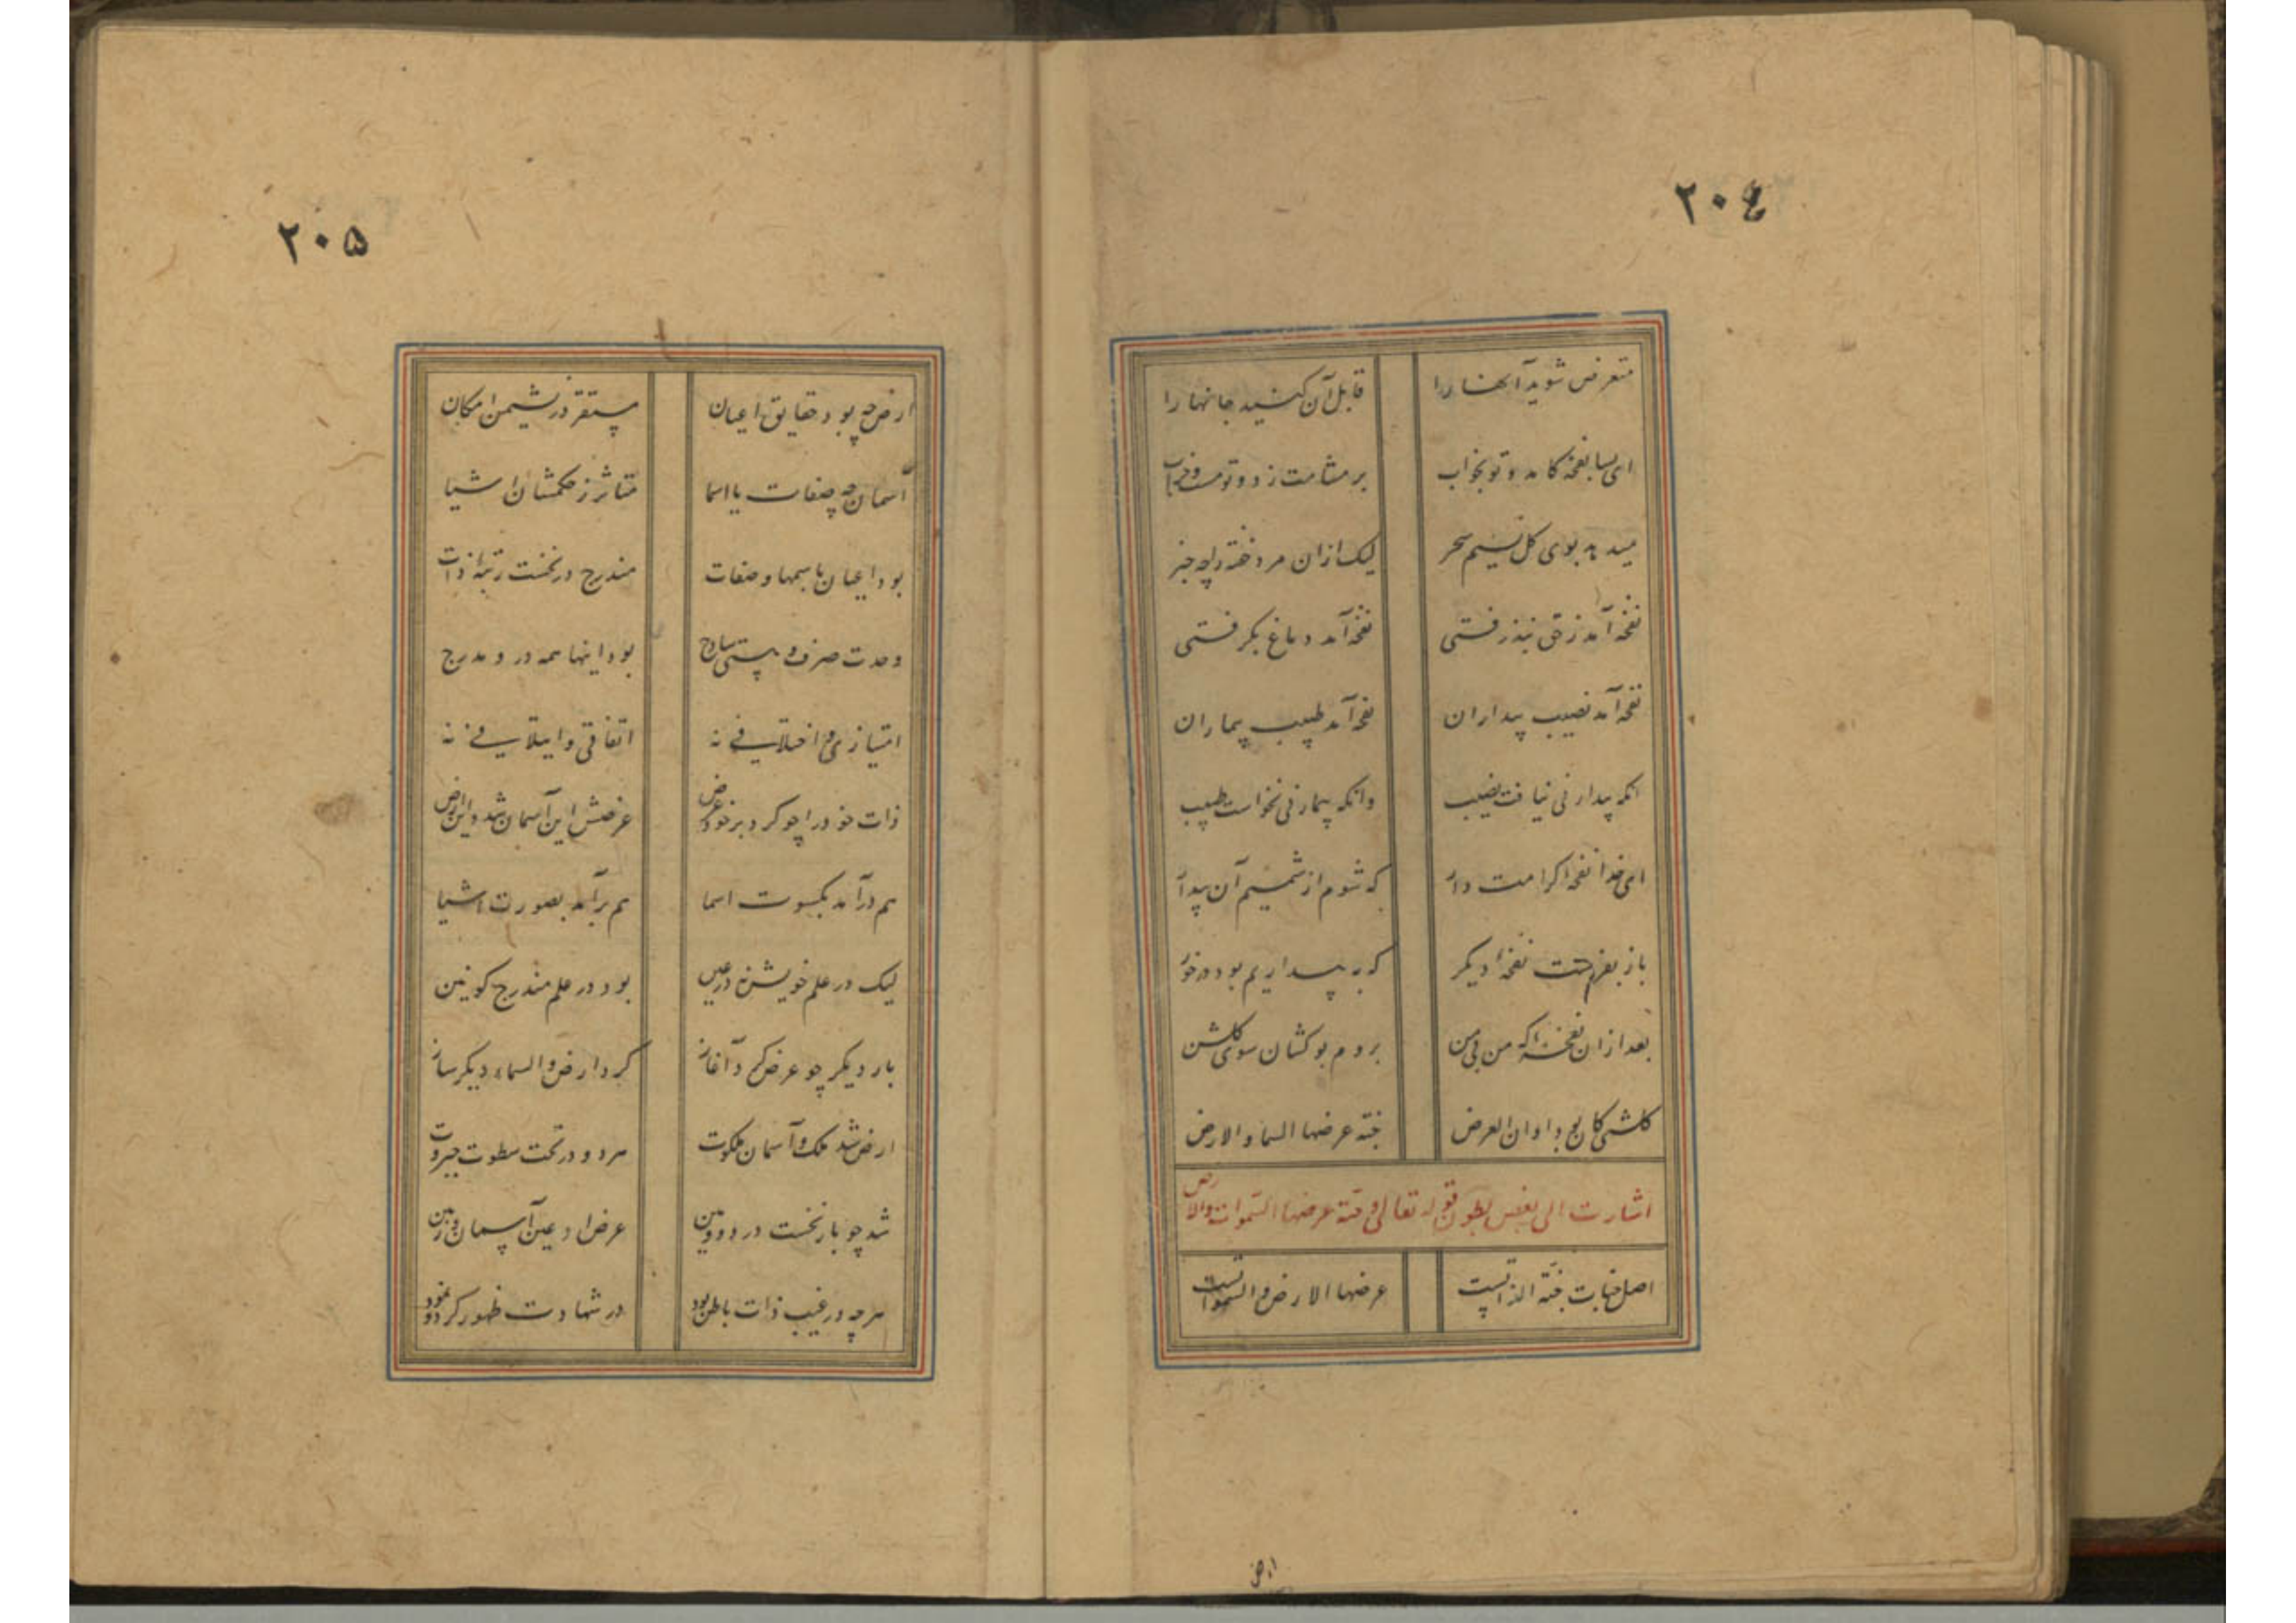 ٢٠٤
متعرض شوید آنها را قابل آن کنید جانها را
ای بسا نفحه کامد و تو بخواب بر مشامت زد و تو مست و خراب
میدمد بوی گل نسیم سحر لیک ازان مرد خفته را چه خبر
نفحه آمد ز حق نپذرفتی نفحه آمد دماغ بگرفتی
نفحه آمد نصیب بیداران نفحه آمد طبیب بیماران
انکه بیدار نی نیافت نصیب وانکه بیمار نی نخواست طبیب
ای خدا نفحه کرامت دار که شوم از شمیم آن بیدار
باز بفرست نفحه دیگر که به بیداریم بود در خور
بعد ازان نفحه که من بی من بروم بوکشان سوی گلشن
گلشنی کان بود اوان العرض جنة عرضها السما والارض
اشارت الی بعض بطون قوله تعالی و جنة عرضها السموات والارض
اصل جنات جنة الذاتست عرضها الارض والسمواتست
ارض
٢٠٥
ارض چه بود حقایق اعیان مستقر در نشیمن امکان
آسمان چه صفات یا اسما متاثر ز حکمشان اشیا
بود اعیان با سمها و صفات مندرج در نخست رتبه ذات
وحدت صرف و هستی ساذج بود اینها همه درو مدرج
امتیازی و اختلافی نه اتفاقی و ایتلافی نه
ذات خود را چو کرد بر خود عرض عرضش این آسمان شد و این ارض
هم درآمد بکسوت اسما هم برآمد بصورت اشیا
لیک در علم خویش نه در عین بود در علم مندرج کونین
بار دیگر چو عرض کرد آغاز کرد ارض والسماء دیگر ساز
ارض شد ملک و آسمان ملکوت هر دو در تحت سطوت جبروت
شد چو بار نخست در دوومین عرض او عین آسمان و زمین
هرچه در غیب ذات باطن بود در شهادت ظهور کرد و نمود